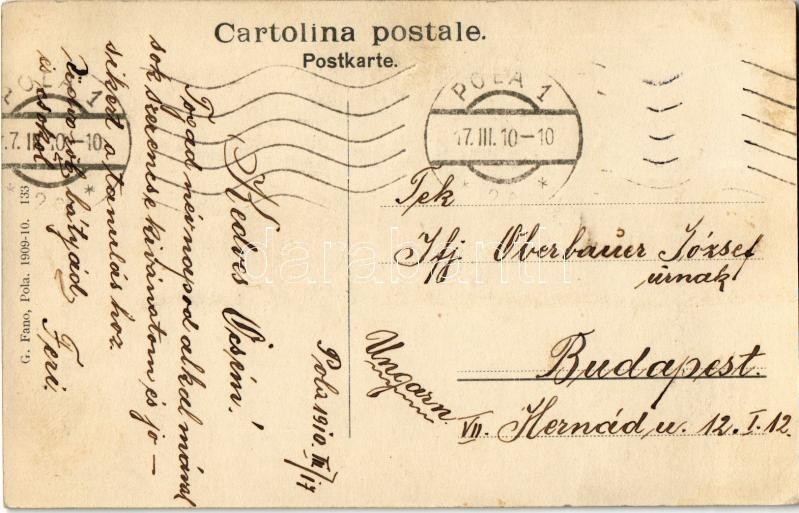 Cartolina postale.
Postkarte.
POLA 1
17.III.10-10
POLA 1
17.III.10-10
Tek
Ifj Oberbauer József
úrnak
Budapest.
VII. Hernád u. 12. I. 12.
Ungarn
Pola 1910 III/17
Kedves Öcsém!
Fogad névnapod alkalmával
sok szerencse kivánatom és jo-
sikert a tanuláshoz.
Üdvözöl bátyád
és csokol Feri.
G. Fano, Pola. 1909-10. 133
darabanth